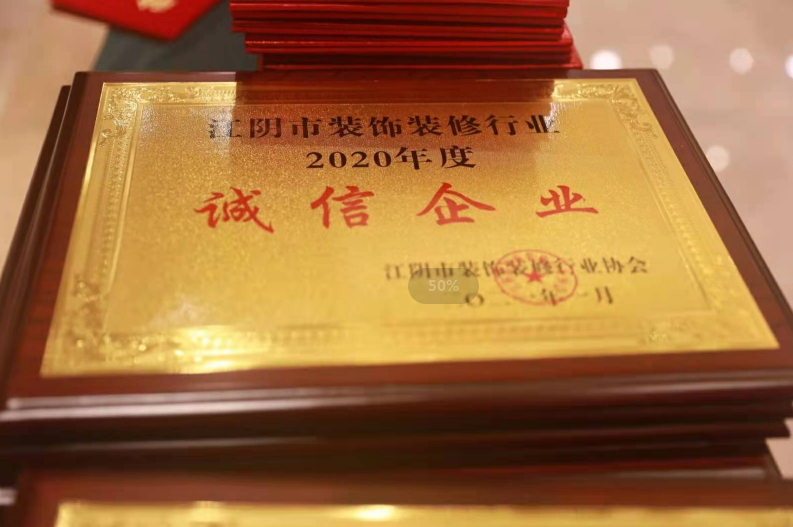 江阴市装饰装修行业
2020年度
诚信企业
江阴市装饰装修行业协会
年一月
50%